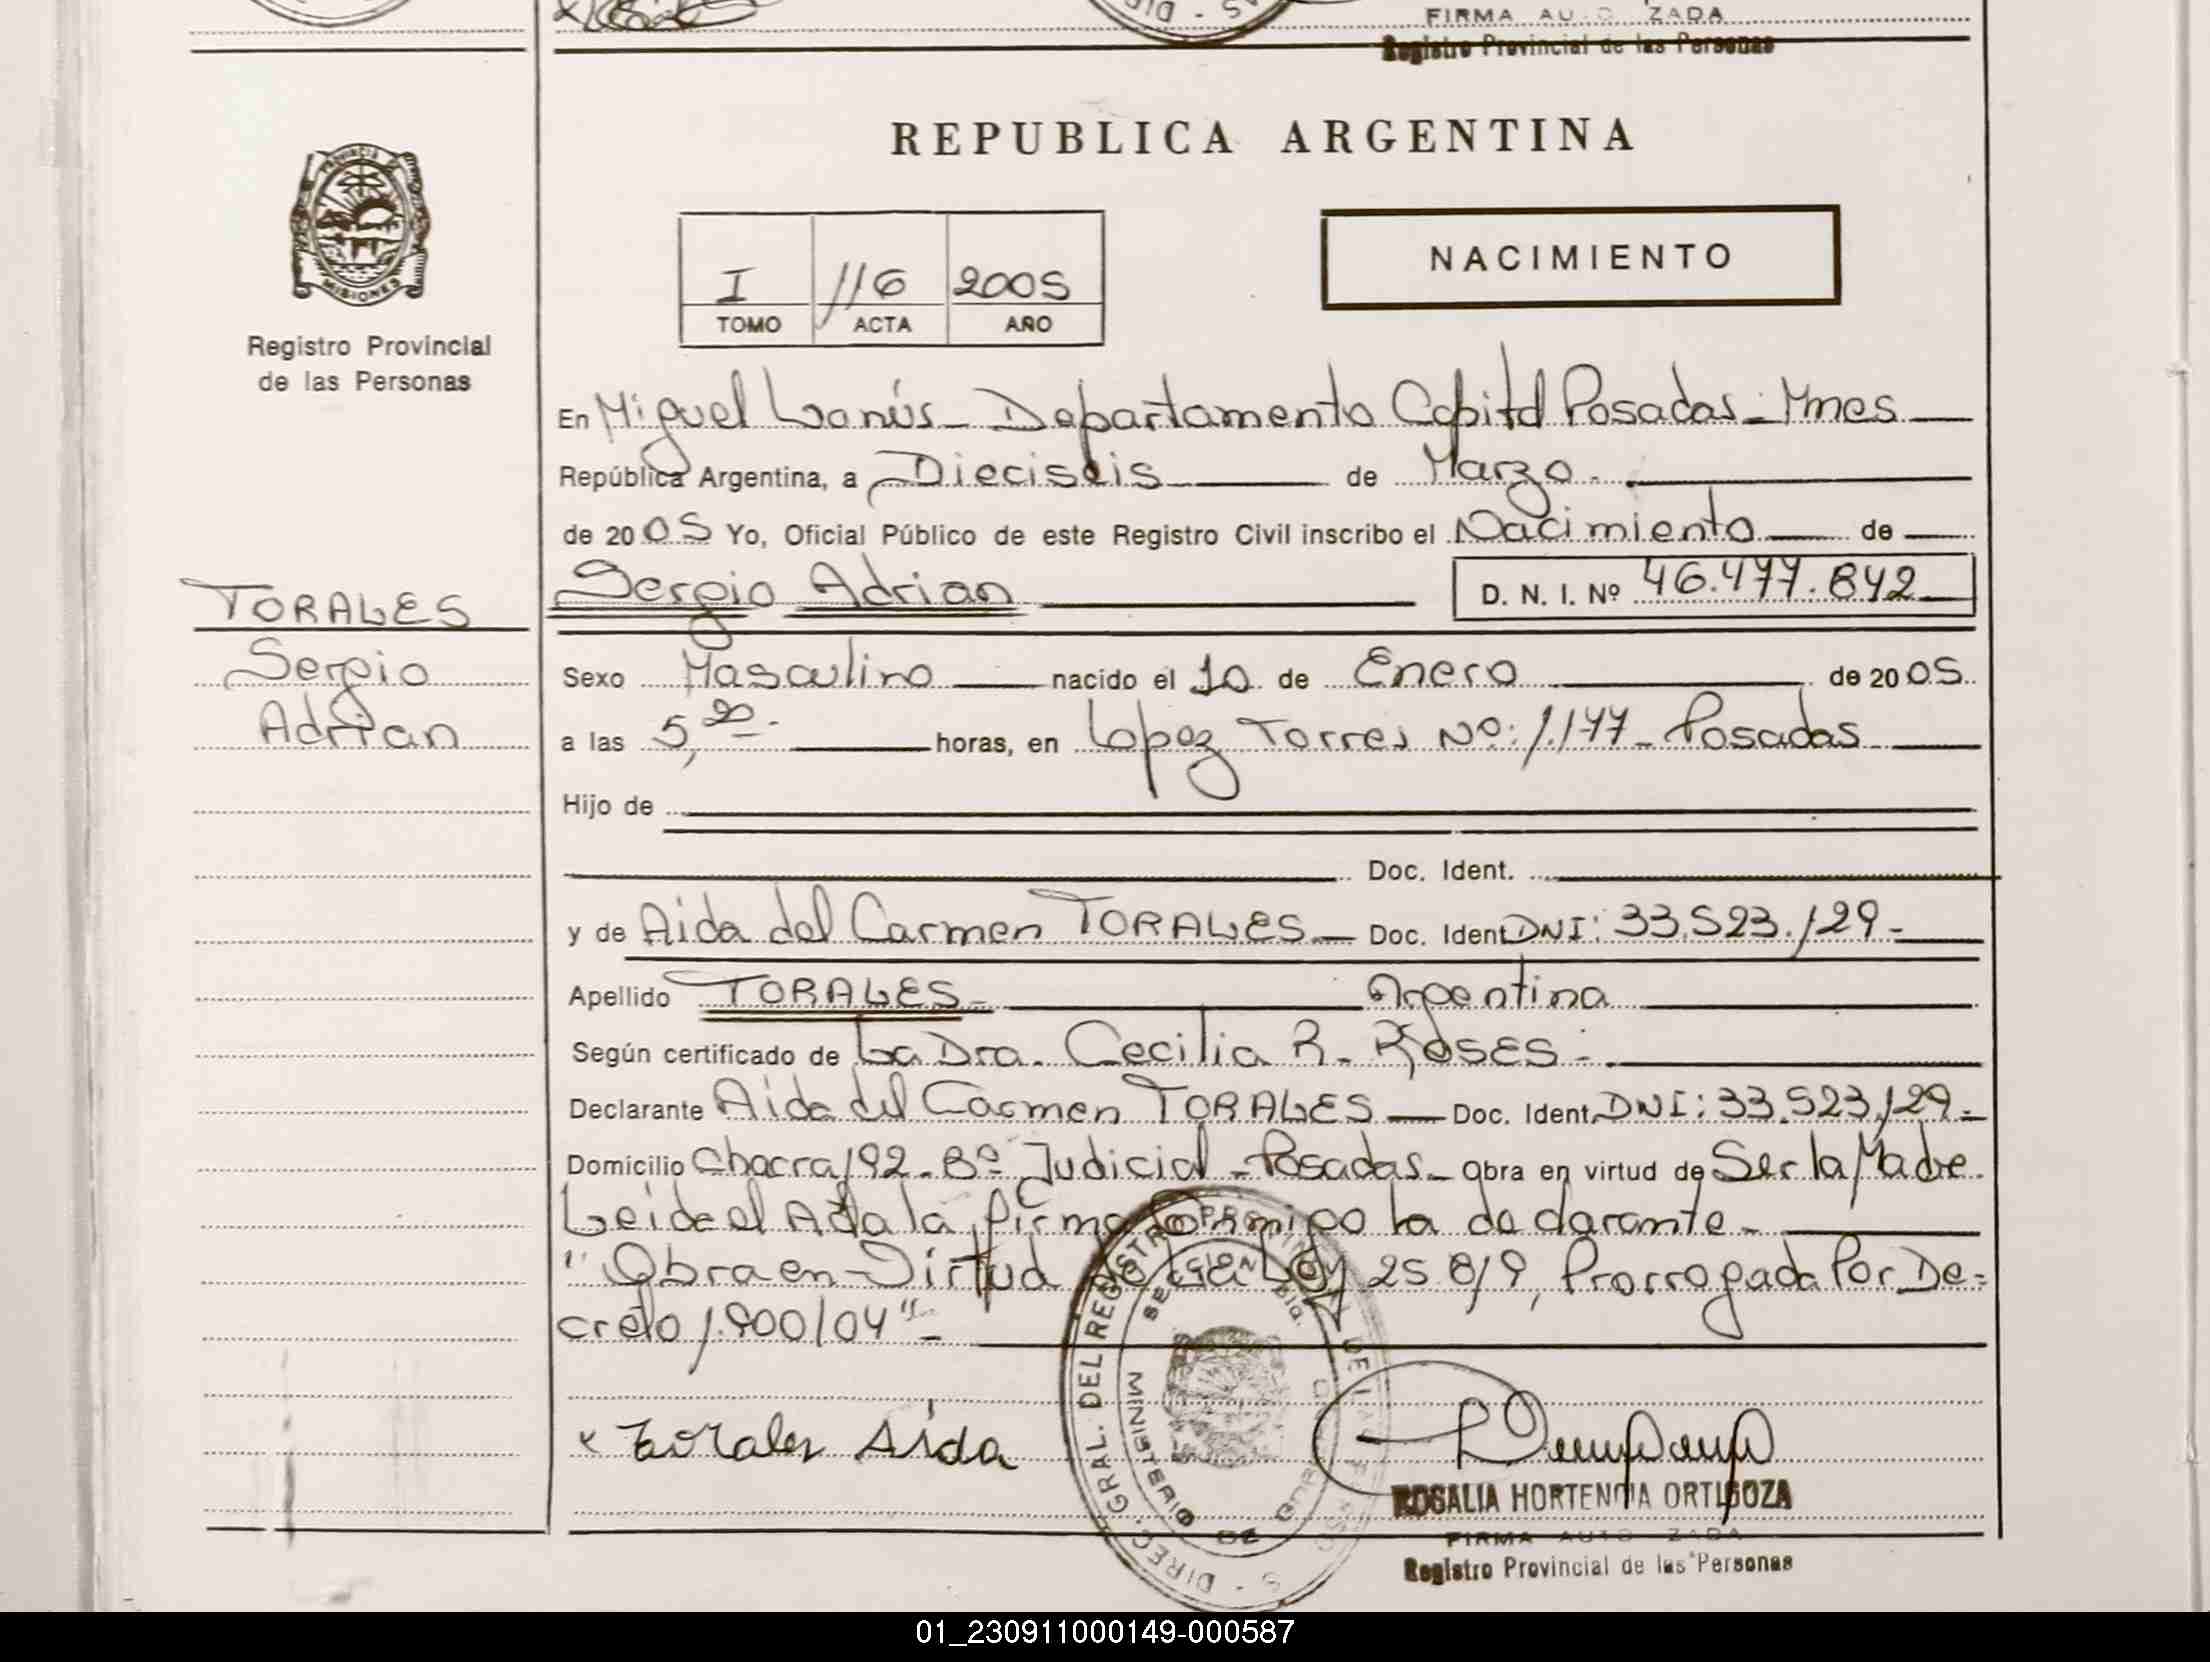 FIRMA AU O ZADA
Registro Provincial de las Personas
REPUBLICA ARGENTINA
PROVINCIA DE
MISIONES
Registro Provincial
de las Personas
I 116 2005
TOMO ACTA AÑO
NACIMIENTO
En Miguel Lanús - Departamento Capital Posadas - Mnes
República Argentina, a Dieciseis de Marzo.
de 2005 Yo, Oficial Público de este Registro Civil inscribo el Nacimiento de
TORALES
Sergio
Adrian
Sergio Adrian D. N. I. Nº 46.477.842
Sexo Masculino nacido el 10 de Enero de 2005
a las 5,20 horas, en Lopez Torres Nº: 1.177 - Posadas
Hijo de
Doc. Ident.
y de Aida del Carmen TORALES Doc. Ident DNI: 33.523.129 -
Apellido TORALES - Argentina
Según certificado de La Dra. Cecilia R. ROSES -
Declarante Aida del Carmen TORALES Doc. Ident. DNI: 33.523.129 -
Domicilio Chacra 192 - Bº Judicial - Posadas - Obra en virtud de Ser la Madre
Leida el Acta la firma conmigo la declarante -
"Obra en Virtud de la Ley 25 819, Prorrogada Por De-
creto 1.900/04" -
x Torales Aida
DIREC. GRAL. DEL REGISTRO PROVINCIAL DE LAS PERSONAS
MINISTERIO DE GOB
ROSALIA HORTENCIA ORTIGOZA
FIRMA AUTO ZADA
Registro Provincial de las Personas
01_230911000149-000587